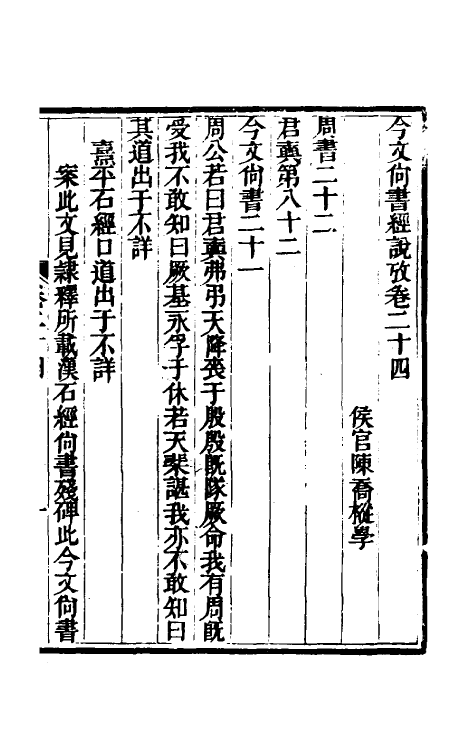 今文尙書經說攷卷二十四
侯官陳喬樅學
周書二十二
君奭第八十二
今文尙書二十一
周公若曰君奭弗弔天降喪于殷殷旣隊厥命我有周旣
受我不敢知曰厥基永孚于休若天棐諶我亦不敢知曰
其道出于不詳
熹平石經口道出于不詳
案此文見隷釋所載漢石經尙書殘碑此今文尙書